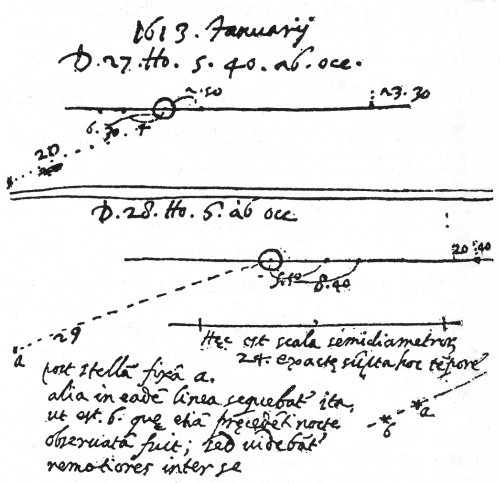 1613. Januarij
D. 27. Ho. 5. 40. ab. occ.
2.50
23.30
6.30. 4
20
D. 28. Ho. 5. ab occ
20 40
5.50 8.40
29
a
Hęc est scala semidiametroꝝ
24. exacte sũpta hoc tẽpore
post stellã fixã a.
alia in eadẽ linea sequebat' ita,
ut est. b. quę etiã pręcedẽti nocte
observatã fuit; sed videbãt'
remotiores inter se
a
b